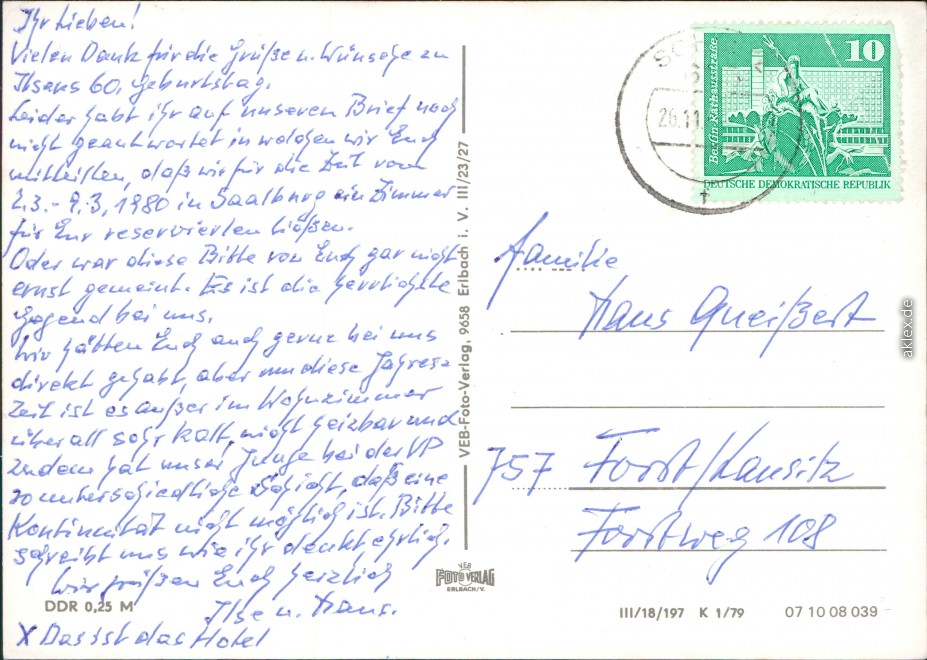 Ihr Lieben!
Vielen Dank für die Grüße u. Wünsche zu
Ilses 60. Geburtstag.
Leider habt ihr auf unseren Brief noch
nicht geantwortet in welchen wir Euch
mitteilten, daß wir für die Zeit vom
2.3. - 9.3, 1980 in Saalburg ein Zimmer
für Euch reservierten ließen.
Oder war diese Bitte von Euch gar nicht
ernst gemeint. Es ist die herrlichste
Gegend bei uns.
Wir hätten Euch auch gerne bei uns
direkt gehabt, aber um diese Jahres=
zeit ist es außer im Wohnzimmer
überall sehr kalt, nicht heizbar und
zudem hat unser Junge bei der VP
so unterschiedliche Schicht, daß eine
Kontinuität nicht möglich ist. Bitte
schreibt uns wie ihr denkt ehrlich.
Wir grüßen Euch herzlich
Ilse u. Hans.
X Das ist das Hotel
DDR 0,25 M
VEB-Foto-Verlag, 9658 Erlbach i. V. III/23/27
VEB
FOTO VERLAG
ERLBACH/V.
26.11.
10
Berlin Rathausstraße
DEUTSCHE DEMOKRATISCHE REPUBLIK
Familie
Hans Queißert
757 Forst/Lausitz
Forstweg 108
III/18/197 K 1/79 07 10 08 039
aklex.de